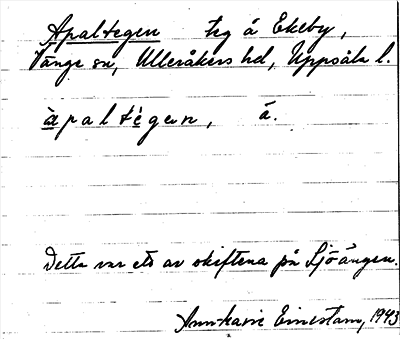 Apaltegen teg å Ekeby,
Vänge sn, Ulleråkers hd, Uppsala l.
àpaltègen, å.
Detta var ett av skiftena på Sjöängen.
Ann-Marie Einestam, 1943